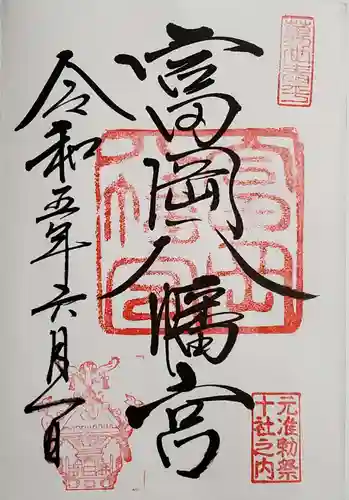 富岡八幡宮
令和五年六月一日
元准勅祭
十社之内